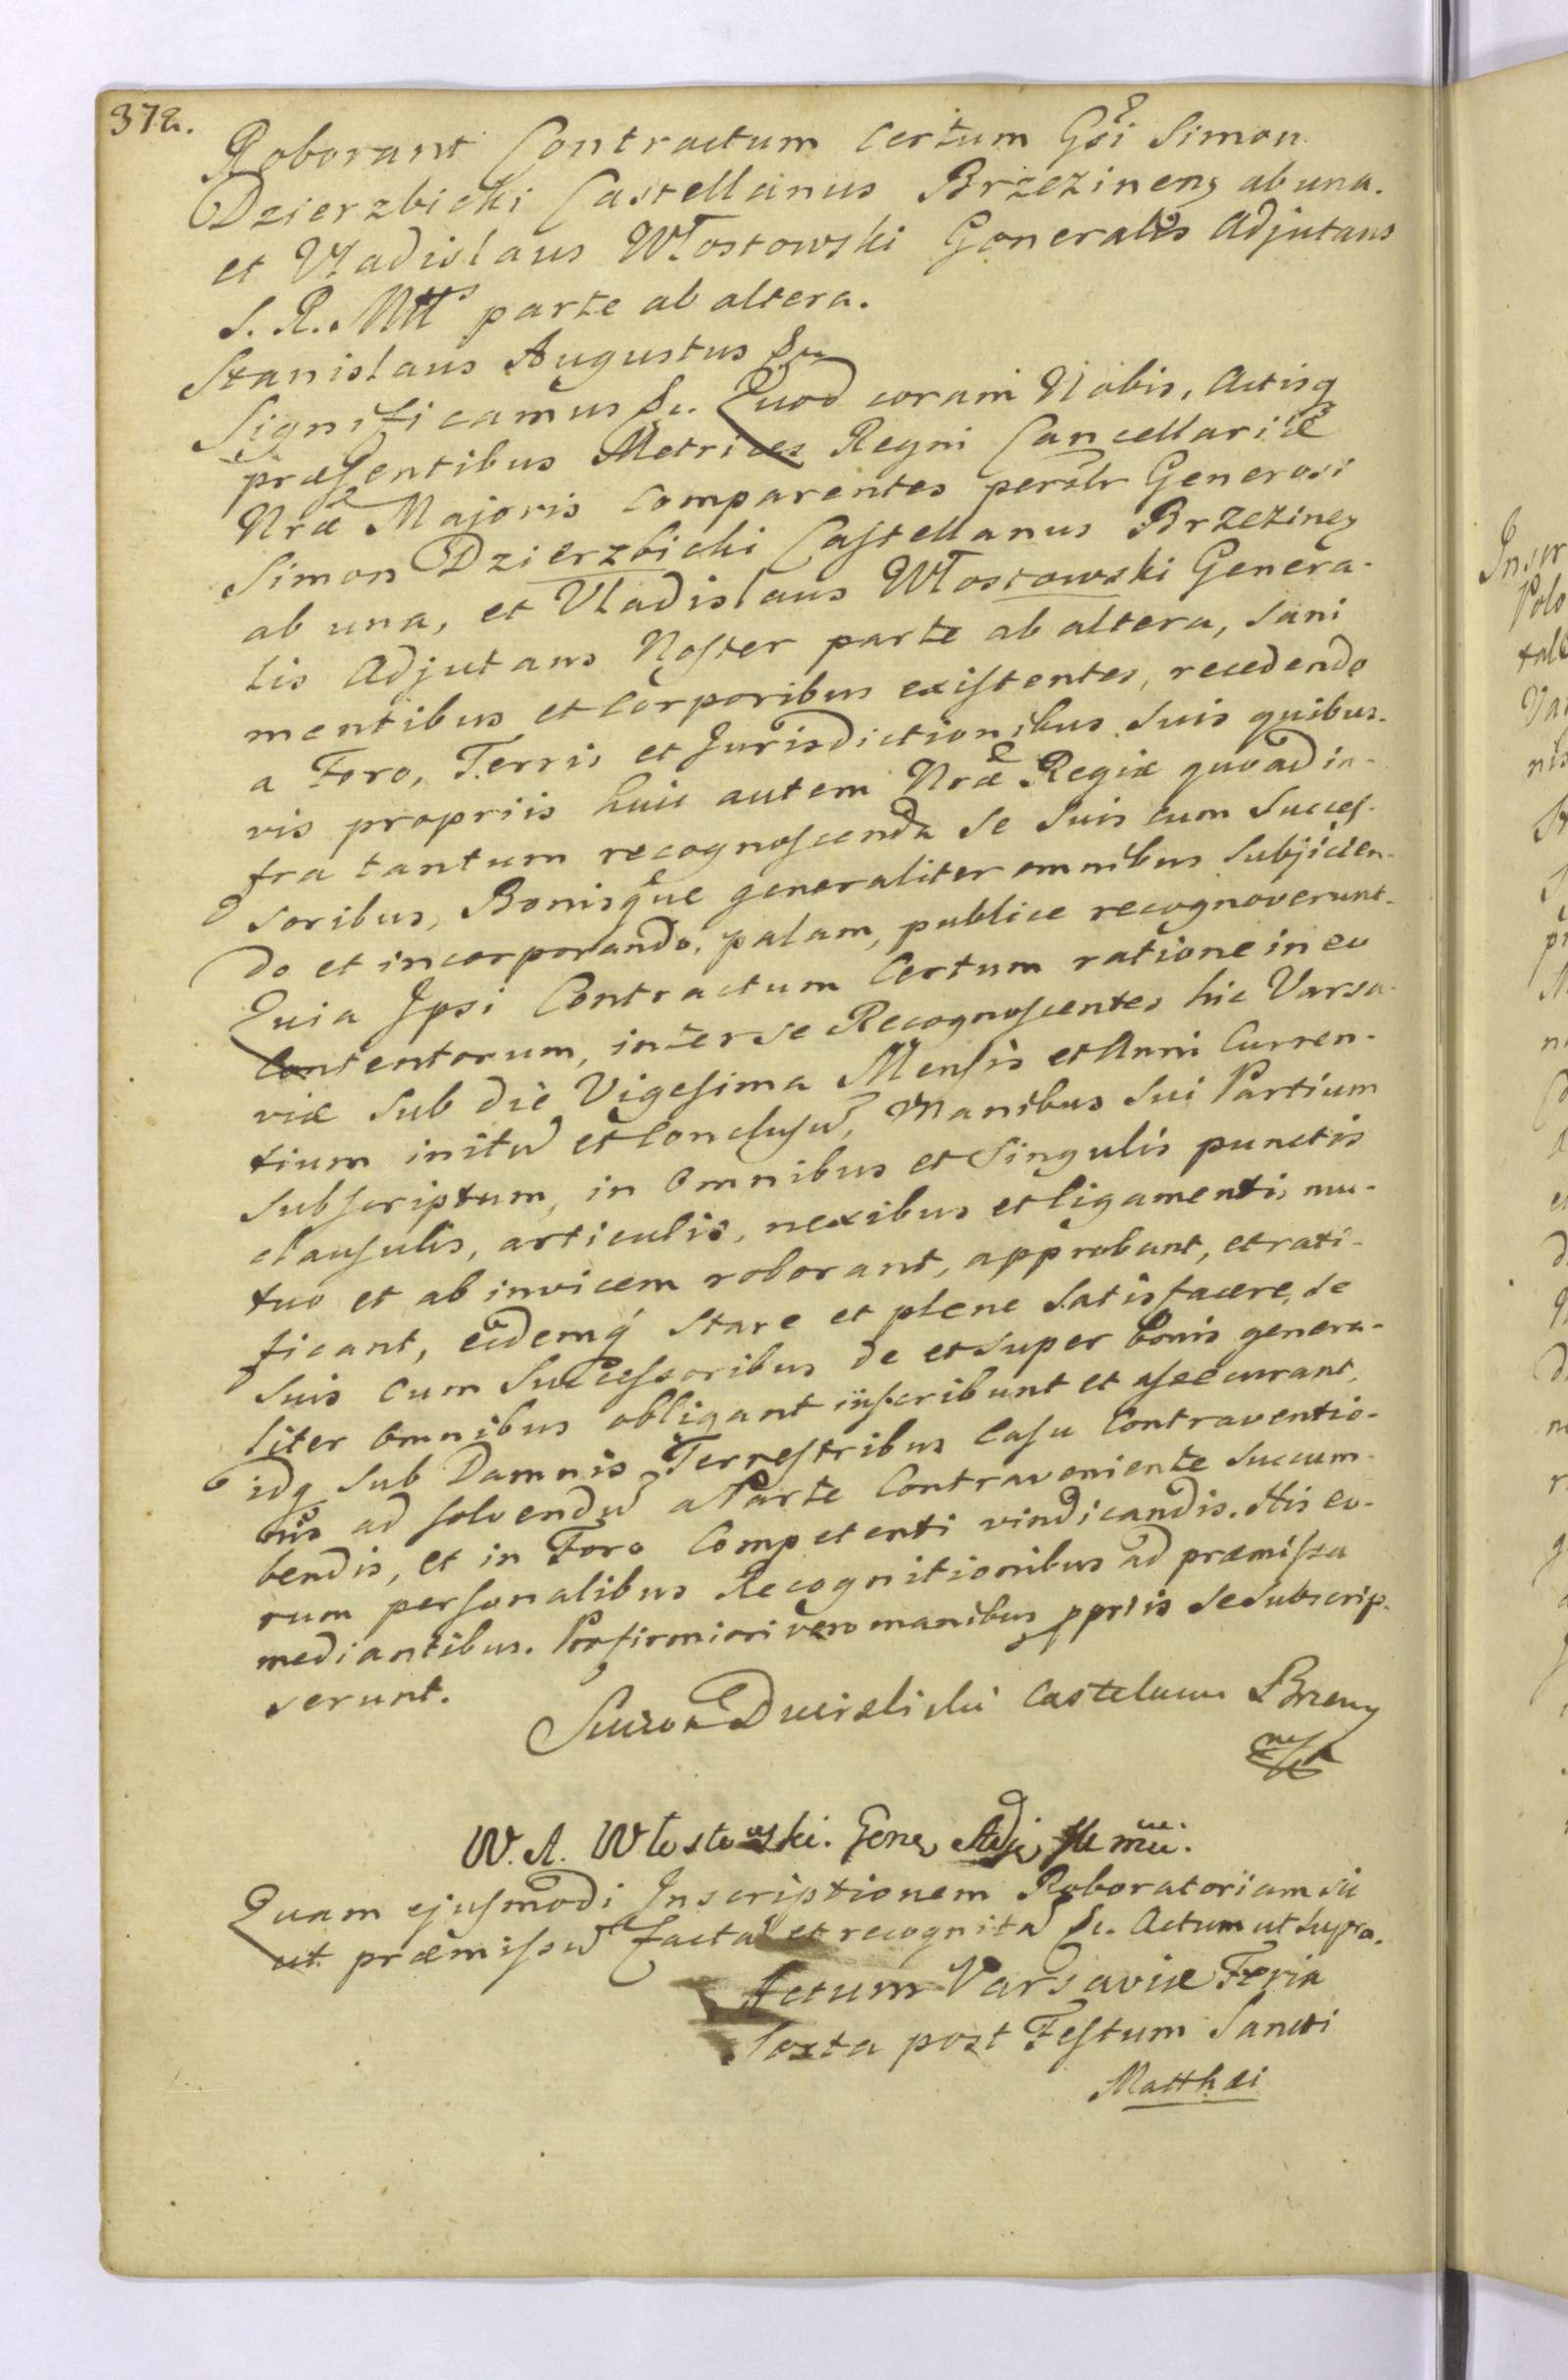 372.
Roborant Contractum certum Gsi Simon
Dzierzbicki Castellanus Brzezinens ab una.
et Vladislaus Włostowski Generalis Adjutans
S. R. Mtts parte ab altera.
Stanislaus Augustus &c
Significamus &c. Quod coram Nobis, Actisq
præsentibus Metrices Regni Cancellariæ
Nræ Majoris comparentes personlr Generosi
Simon Dzierzbicki Castellanus Brzezinen
ab una, et Vladislaus Włostowski Genera-
lis Adjutans Noster parte ab altera, sani
mentibus et corporibus existentes, recedendo
a Foro, Terris et Jurisdictionibus suis quibus-
vis propriis huic autem Nræ Regiæ quoad in-
fra tantum recognoscenda se suis cum succes-
soribus, Bonisque generaliter omnibus subjicien-
do et incorporando, palam, publice recognoverunt.
Quia Ipsi Contractum Certum ratione in eo
Contentorum, inter se Recognoscentes hic Varsa-
viæ sub die Vigesima Mensis et Anni Curren-
tium initũ et Conclusũ, Manibus sui Partium
subscriptum, in omnibus et singulis punctis
clausulis, articulis, nexibus et ligamentis mu-
tuo et ab invicem roborant, approbant, et rati-
ficant, eidemq stare et plene satisfacere, se
suis cum successoribus de et super bonis genera-
liter omnibus obligant inscribunt et assecurant,
idq sub Damnis Terrestribus casu Contraventio-
nis ad solvendũ a Parte Contraveniente succum-
bendis, et in Foro Competenti vindicandis. His eo-
rum personalibus Recognitionibus ad præmissa
mediantibus. Pro firmiori vero manibus ppriis se subscrip-
serunt.
Simon Dzierzbicki Castelanus Brzeny
W. A. Włostowski. Gene Adj
Quam ejusmodi Inscriptionem Roboratoriam sic
ut præmissũ facta et recognita &c. Actum ut supra.
Actum Varsaviæ Feria
Sexta post Festum Sancti
Matthæi